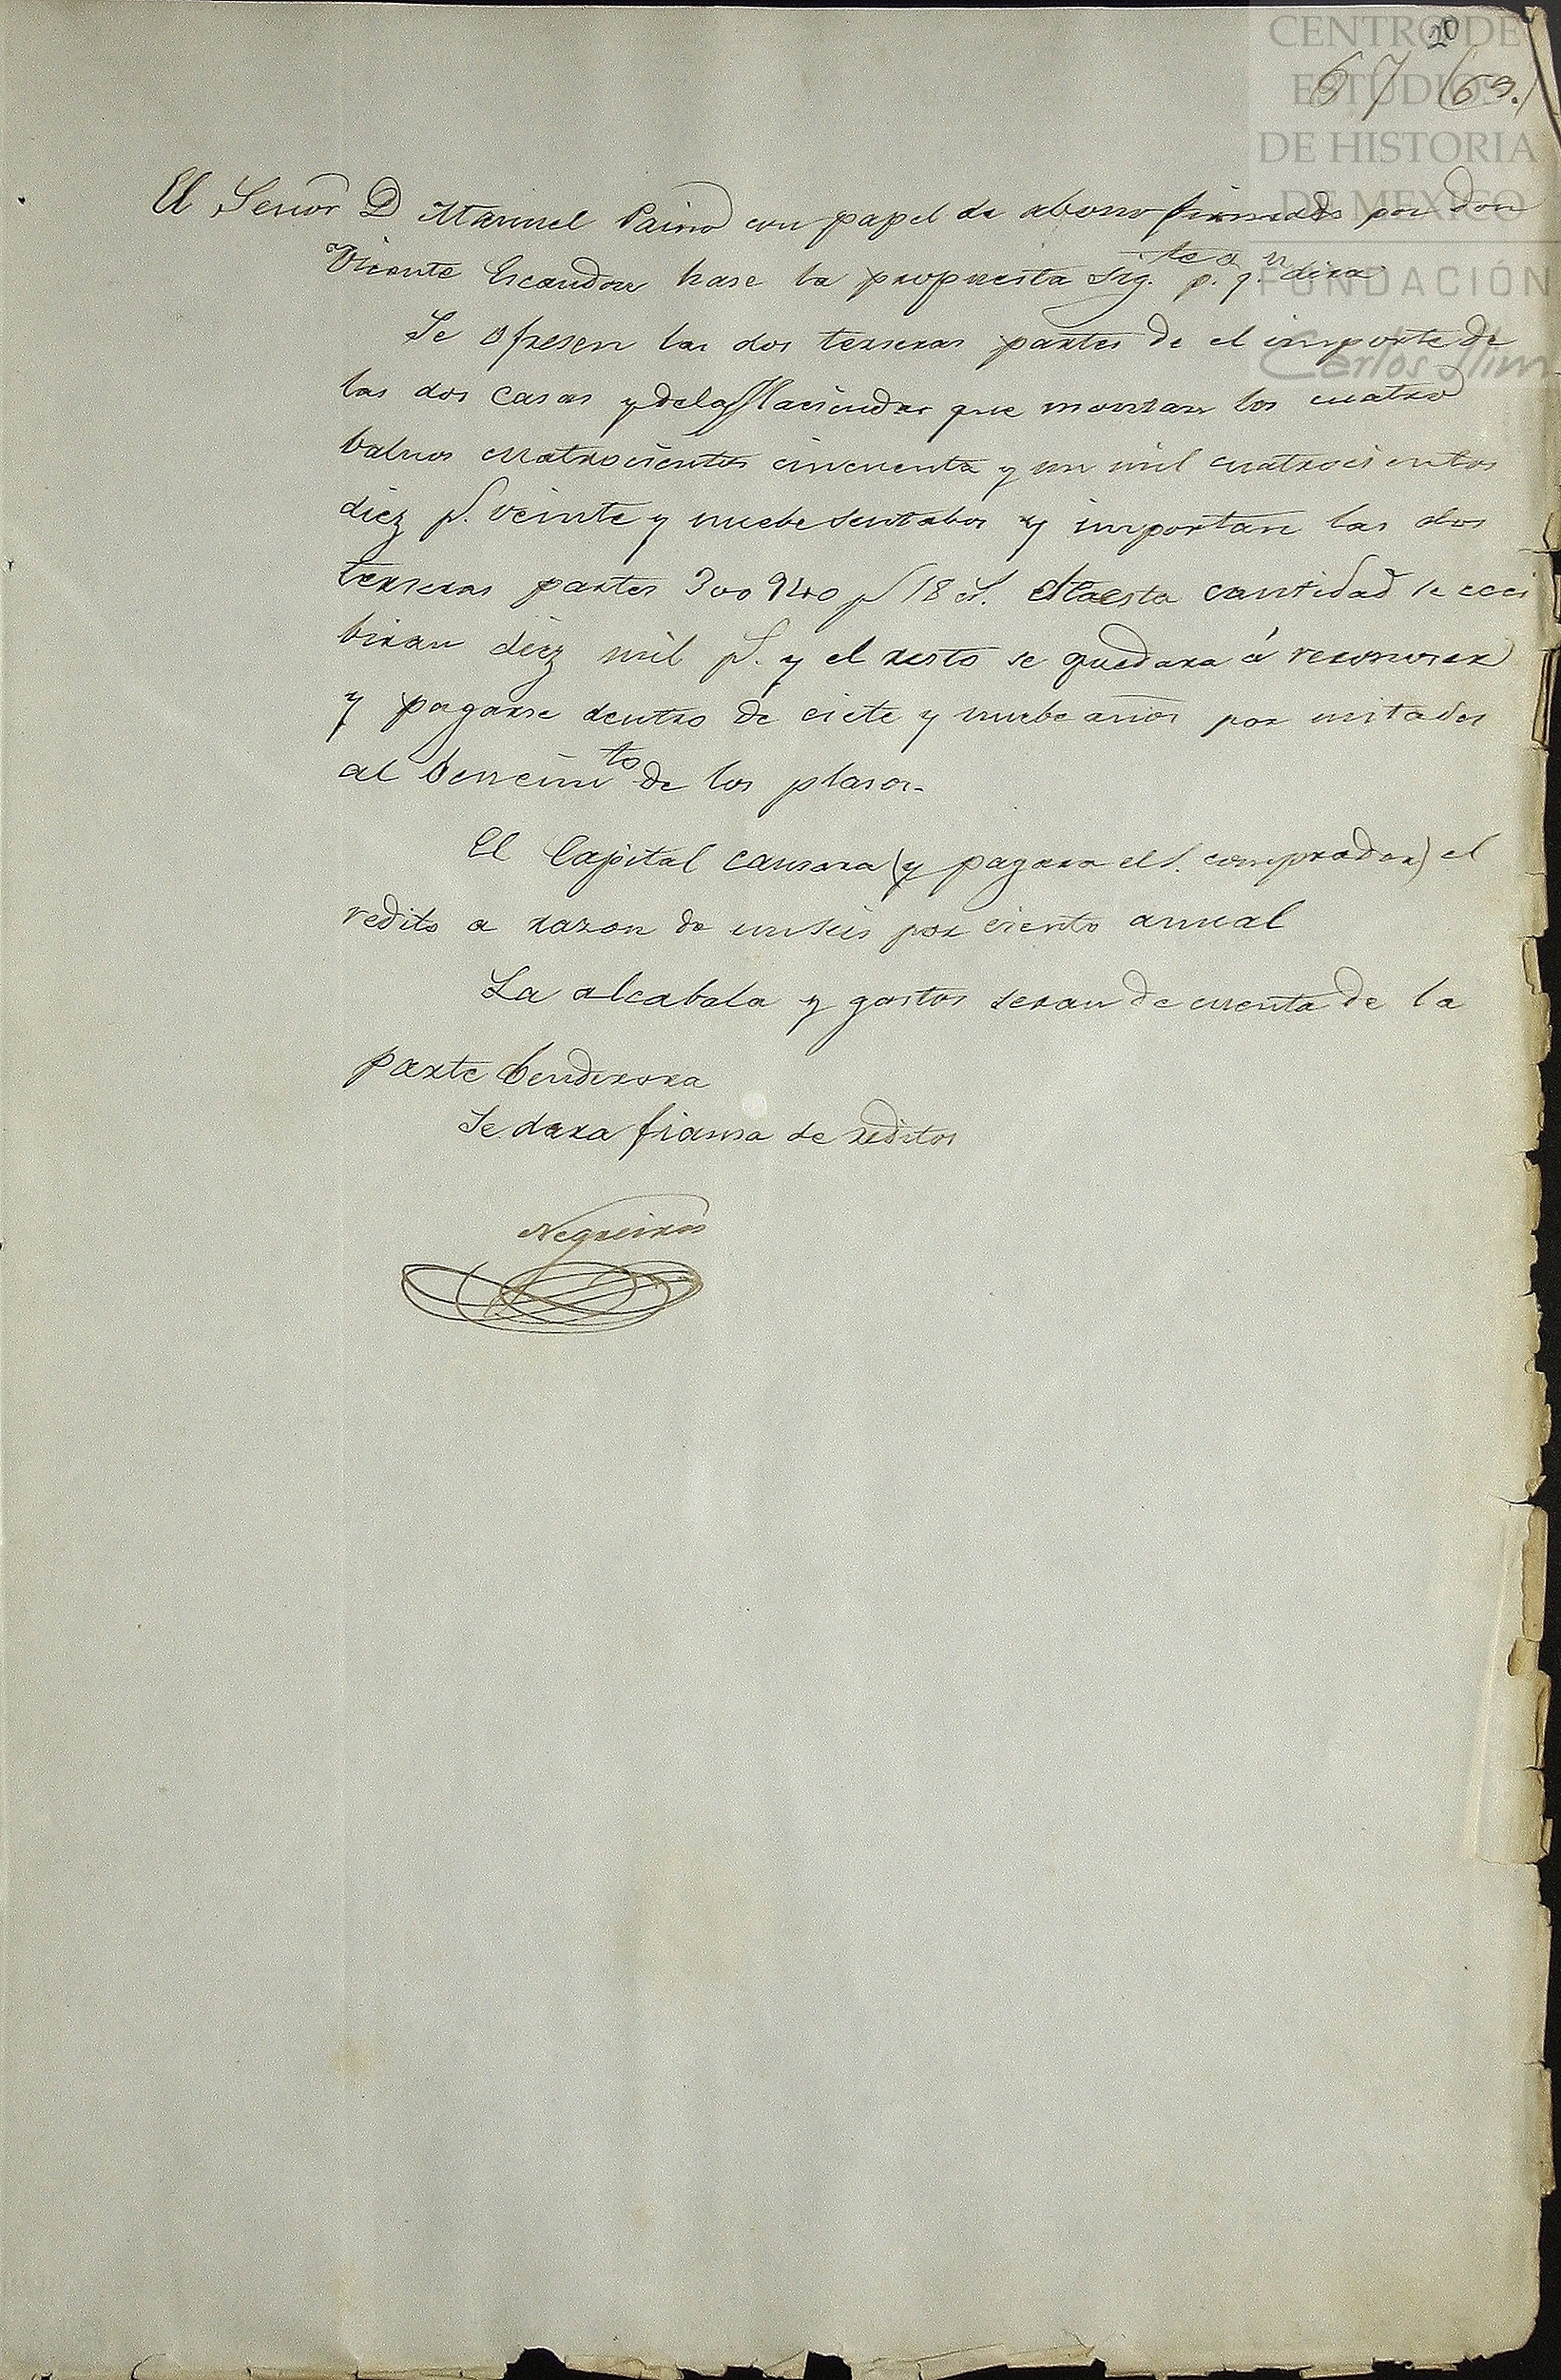 CENTRO DE
ESTUDIOS
DE HISTORIA
DE MEXICO
FUNDACIÓN
Carlos Slim
20
67 69.
El Señor D Manuel Paino con papel de abono firmado por don
Vicente Escandon hase la propuesta sig.te p.a q.n dira
Se ofresen las dos terseras partes de el importe de
las dos casas y de las Haciendas que montan los cuatro
baluos cuatrocientos cincuenta y un mil cuatrocientos
diez p.s veinte y nuebe sentabos y importan las dos
terseras partes 300940 p.s 18 c.s esta cantidad se eci
biran diez mil p.s y el resto se quedara á reconoser
y pagarse dentro de ciete y nuebe años por mitades
al bencim.to de los plasos.
El Capital causara (y pagara el S. comprador) el
redito a razon de un seis por ciento anual
La alcabala y gastos seran de cuenta de la
parte bendedora
Se dara fiansa de reditos
Negreiros